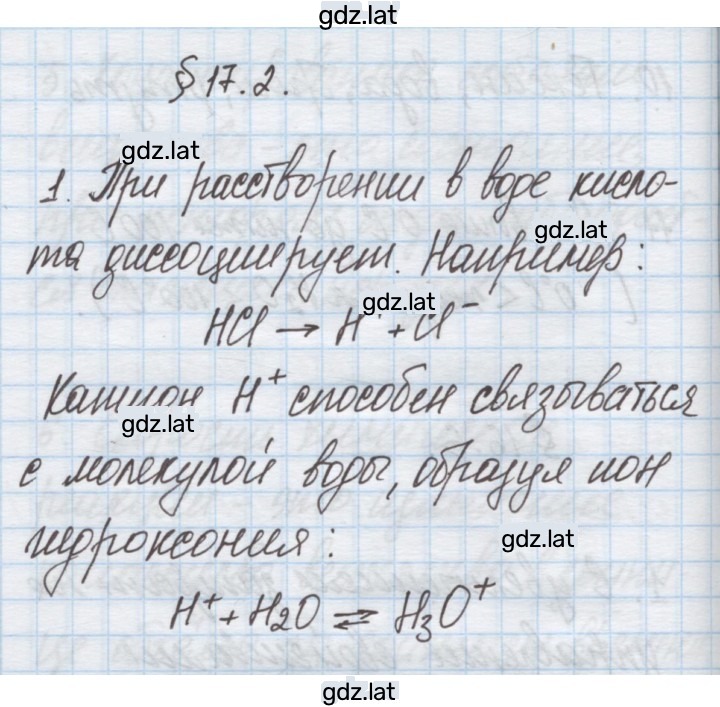 gdz.lat
§ 17.2.
gdz.lat
1. При расстворении в воде кисло-
gdz.lat
та диссоциирует. Например:
gdz.lat
HCl → H + Cl⁻
Катион H⁺ способен связываться
gdz.lat
с молекулой воды, образуя ион
гидроксония:
gdz.lat
H⁺ + H2O ⇌ H₃O⁺
gdz.lat